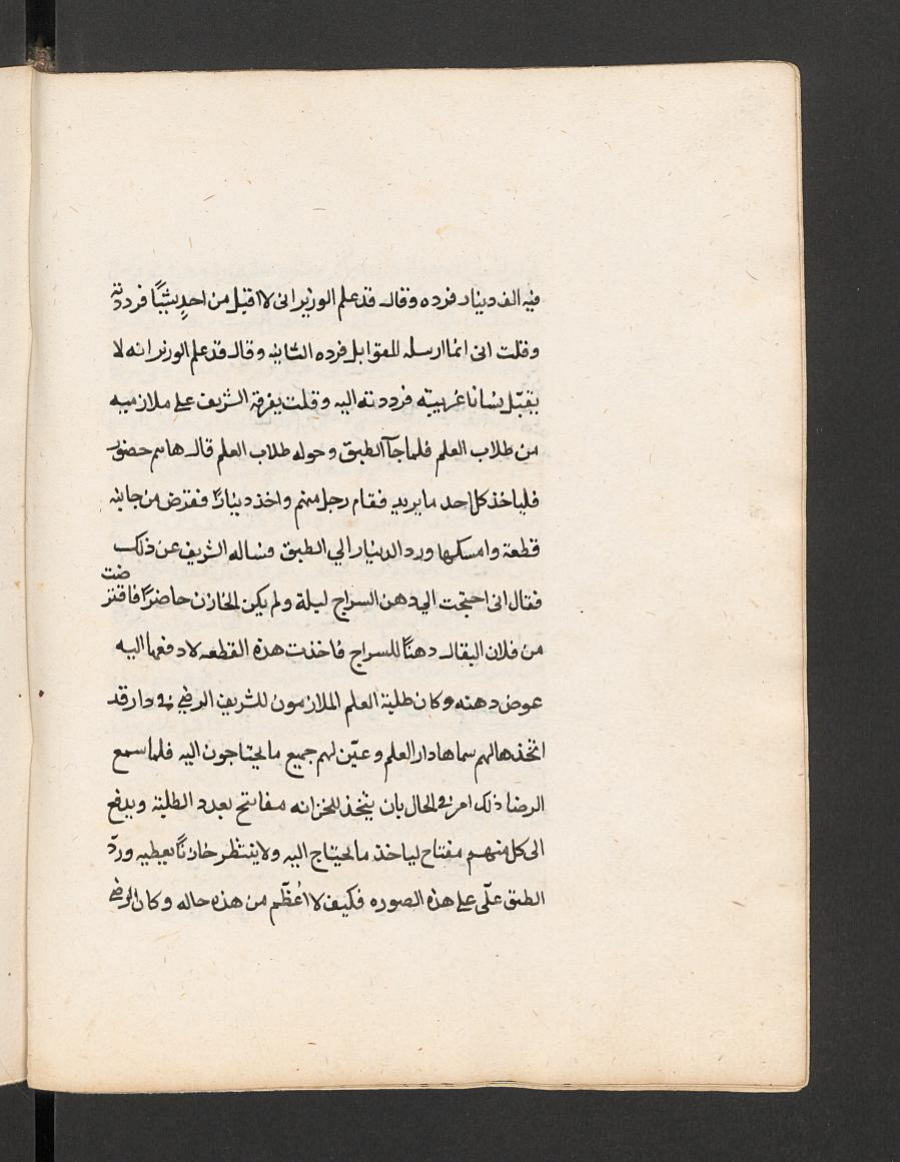 فيه الف دينار فرده وقال قد علم الوزير انى لا اقبل من احدٍ شيئًا فرددته
وقلت انى انما ارسله للقوابل فرده الثانيه وقال قد علم الوزير انه لا
يقبّل نسانا غريبيّه فرددته اليه وقلت يفرقه الشريف على ملازميه
من طلاب العلم فلما جآ الطبق وحوله طلاب العلم قال هاهم حضور
فلياخذ كل احد ما يريد فقام رجل منهم واخذ دينارًا فقرض من جانبه
قطعة وامسكها ورد الدينار الي الطبق فساله الشريف عن ذلك
فقال انى احتجت الي دهن السراج ليلة ولم يكن الخازن حاضرًا فاقترضت
من فلان البقال دهنًا للسراج فاخذت هذه القطعه لادفعها اليه
عوض دهنه وكان طلبة العلم الملازمون للشريف الرضي في دار قد
اتخذها لهم سماها دار العلم وعيّن لهم جميع ما يحتاجون اليه فلما سمع
الرضا ذلك امر في الحال بان يتخذ للخزانه مفاتيح بعدد الطلبة ويدفع
الى كل منهم مفتاح لياخذ ما يحتاج اليه ولا ينتظر خازنًا يعطيه وردّ
الطبق علّى على هذه الصوره فكيف لا اُعظّم من هذه حاله وكان الرضي